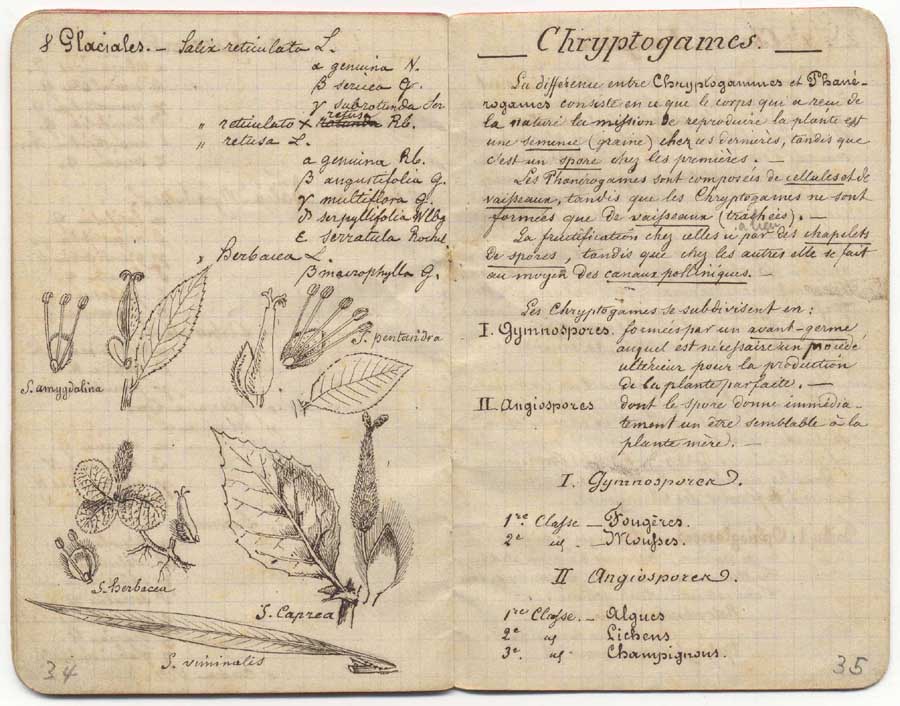 8 Glaciales. — Salix reticulata L.
α genuina N.
β sericea G.
γ subrotunda Ser
" reticulato × rotunda retusa Rb.
" retusa L.
α genuina Rb.
β angustifolia G.
γ multiflora G.
δ serpyllifolia Wlbg
ε serratula Rochel
" Herbacea L.
β macrophylla G.
S. amygdalina
S. pentandra
S. herbacea
S. Caprea
S. viminalis
34
Chryptogames.
La différence entre Chryptogammes et Phané-
rogames consiste en ce que le corps qui a recu de
la nature la mission de reproduire la plante est
une semence (graine) chez ces dernières, tandis que
c'est un spore chez les premières. —
Les Phanérogames sont composées de cellules et de
vaisseaux, tandis que les Chryptogames ne sont
formées que de vaisseaux (trachées). —
La fructification chez celles ci a lieu par des chapelets
de spores, tandis que chez les autres elle se fait
au moyen des canaux polliniques. —
Les Chryptogames se subdivisent en :
I. Gymnospores. formées par un avant-germe,
auquel est nécessaire un procédé
ultérieur pour la production
de la plante parfaite. —
II. Angiospores dont le spore donne immédia-
tement un être semblable à la
plante mère. —
I. Gymnospores.
1re Classe — Fougères.
2e id. — Mousses.
II Angiospores.
1re Classe. — Algues
2e id. Lichens
3e. id. Champignons.
35